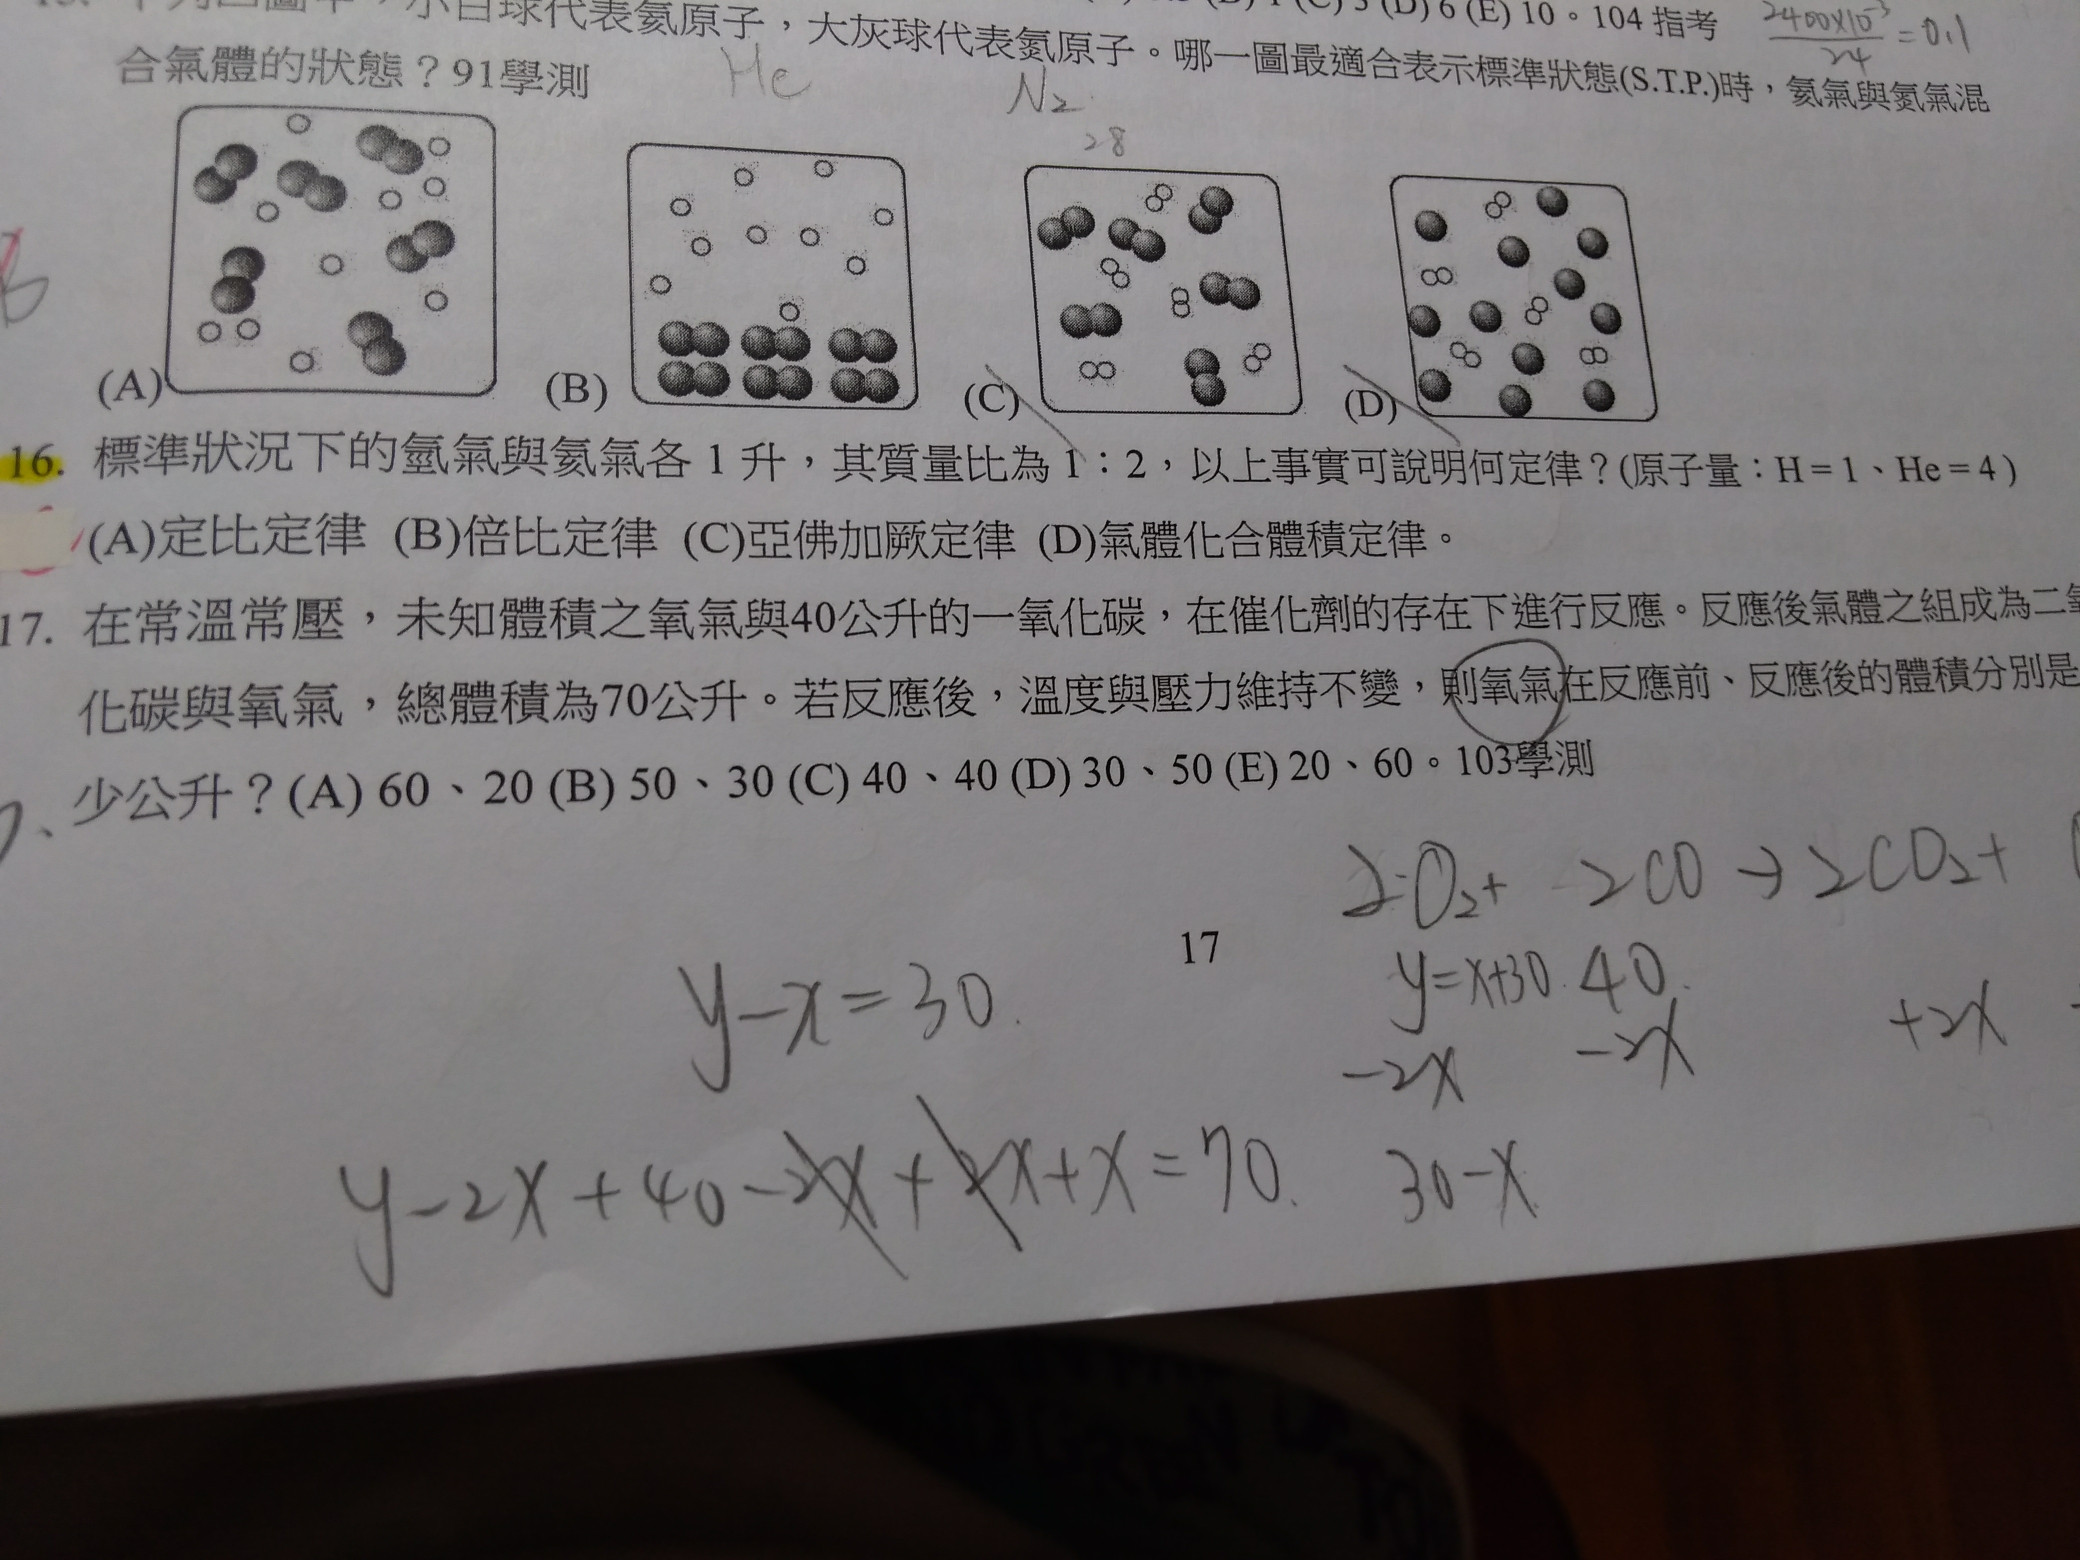 (C) 5 (D) 6 (E) 10。104 指考
2400×10⁻³/24 = 0.1
小白球代表氦原子，大灰球代表氮原子。哪一圖最適合表示標準狀態(S.T.P.)時，氦氣與氮氣混
合氣體的狀態？91學測
He
N₂
28
(A)
(B)
(C)
(D)
16. 標準狀況下的氫氣與氦氣各 1 升，其質量比為 1：2，以上事實可說明何定律？(原子量：H = 1、He = 4 )
(A)定比定律 (B)倍比定律 (C)亞佛加厥定律 (D)氣體化合體積定律。
17. 在常溫常壓，未知體積之氧氣與40公升的一氧化碳，在催化劑的存在下進行反應。反應後氣體之組成為二氧
化碳與氧氣，總體積為70公升。若反應後，溫度與壓力維持不變，則氧氣在反應前、反應後的體積分別是
少公升？(A) 60、20 (B) 50、30 (C) 40、40 (D) 30、50 (E) 20、60。103學測
O₂+ 2CO → 2CO₂+
17
y=x+30 40
y-x=30
-2x -2x +2x
y-2x+40-2x+2x+x=70
30-x